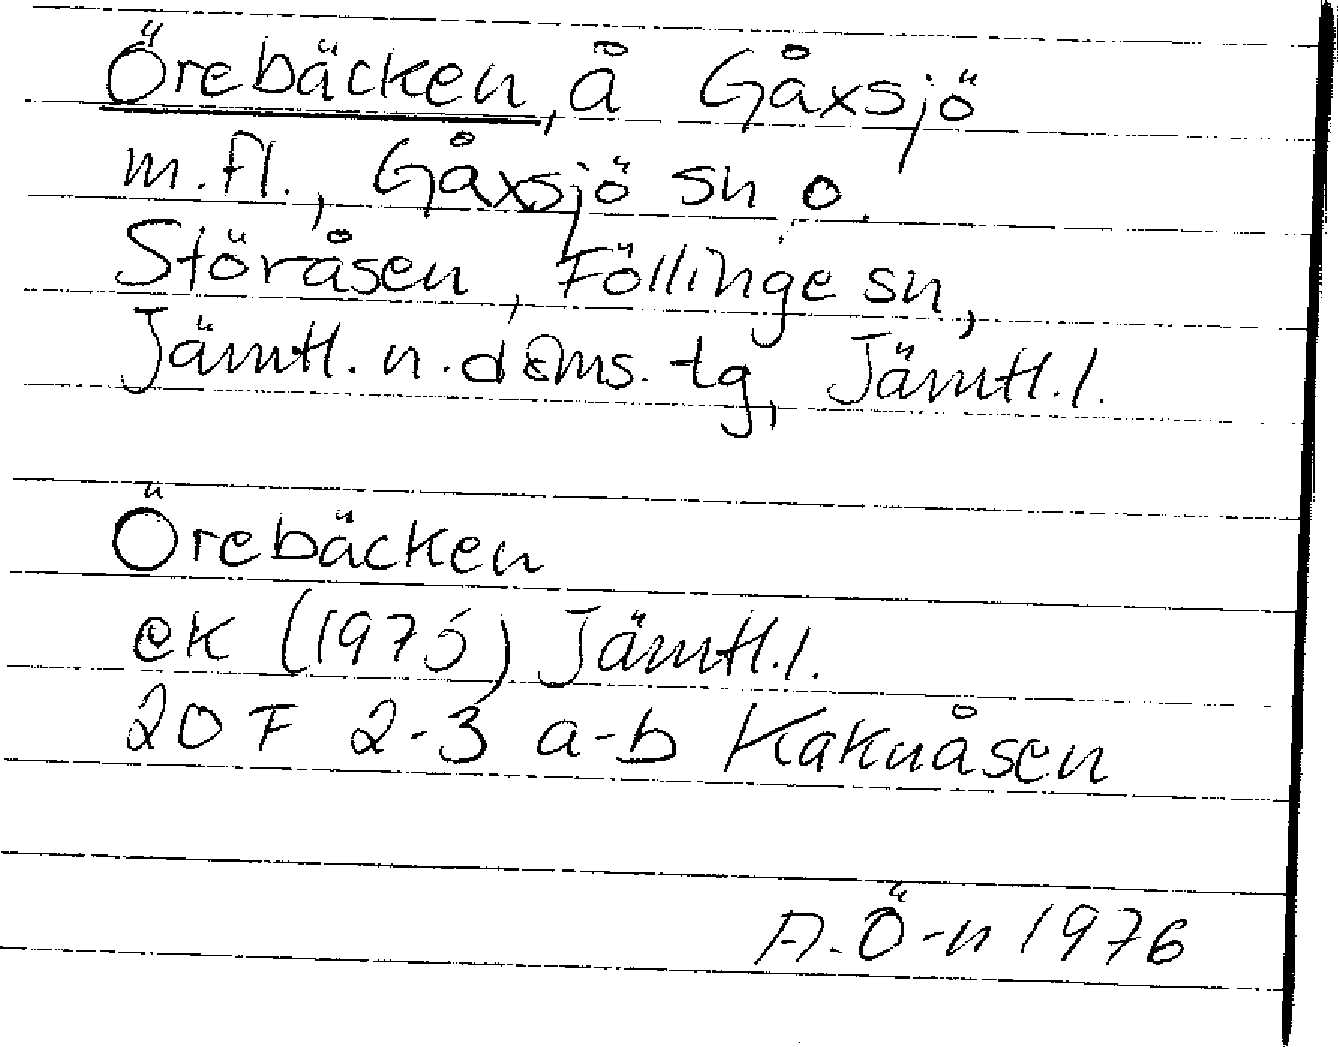 Örebäcken, å Gåxsjö
m.fl., Gåxsjö sn o.
Störåsen, Föllinge sn,
Jämtl. n. doms. tg, Jämtl. l.
Örebäcken
ek (1975) Jämtl. l.
20 F 2-3 a-b Kakuåsen
A. Ö-n 1976